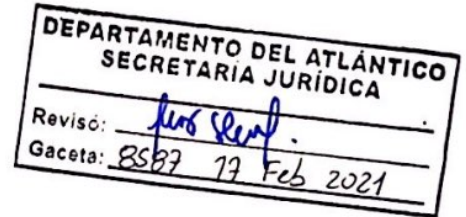 DEPARTAMENTO DEL ATLÁNTICO
SECRETARÍA JURÍDICA
Revisó:
Gaceta: 8587 17 Feb 2021